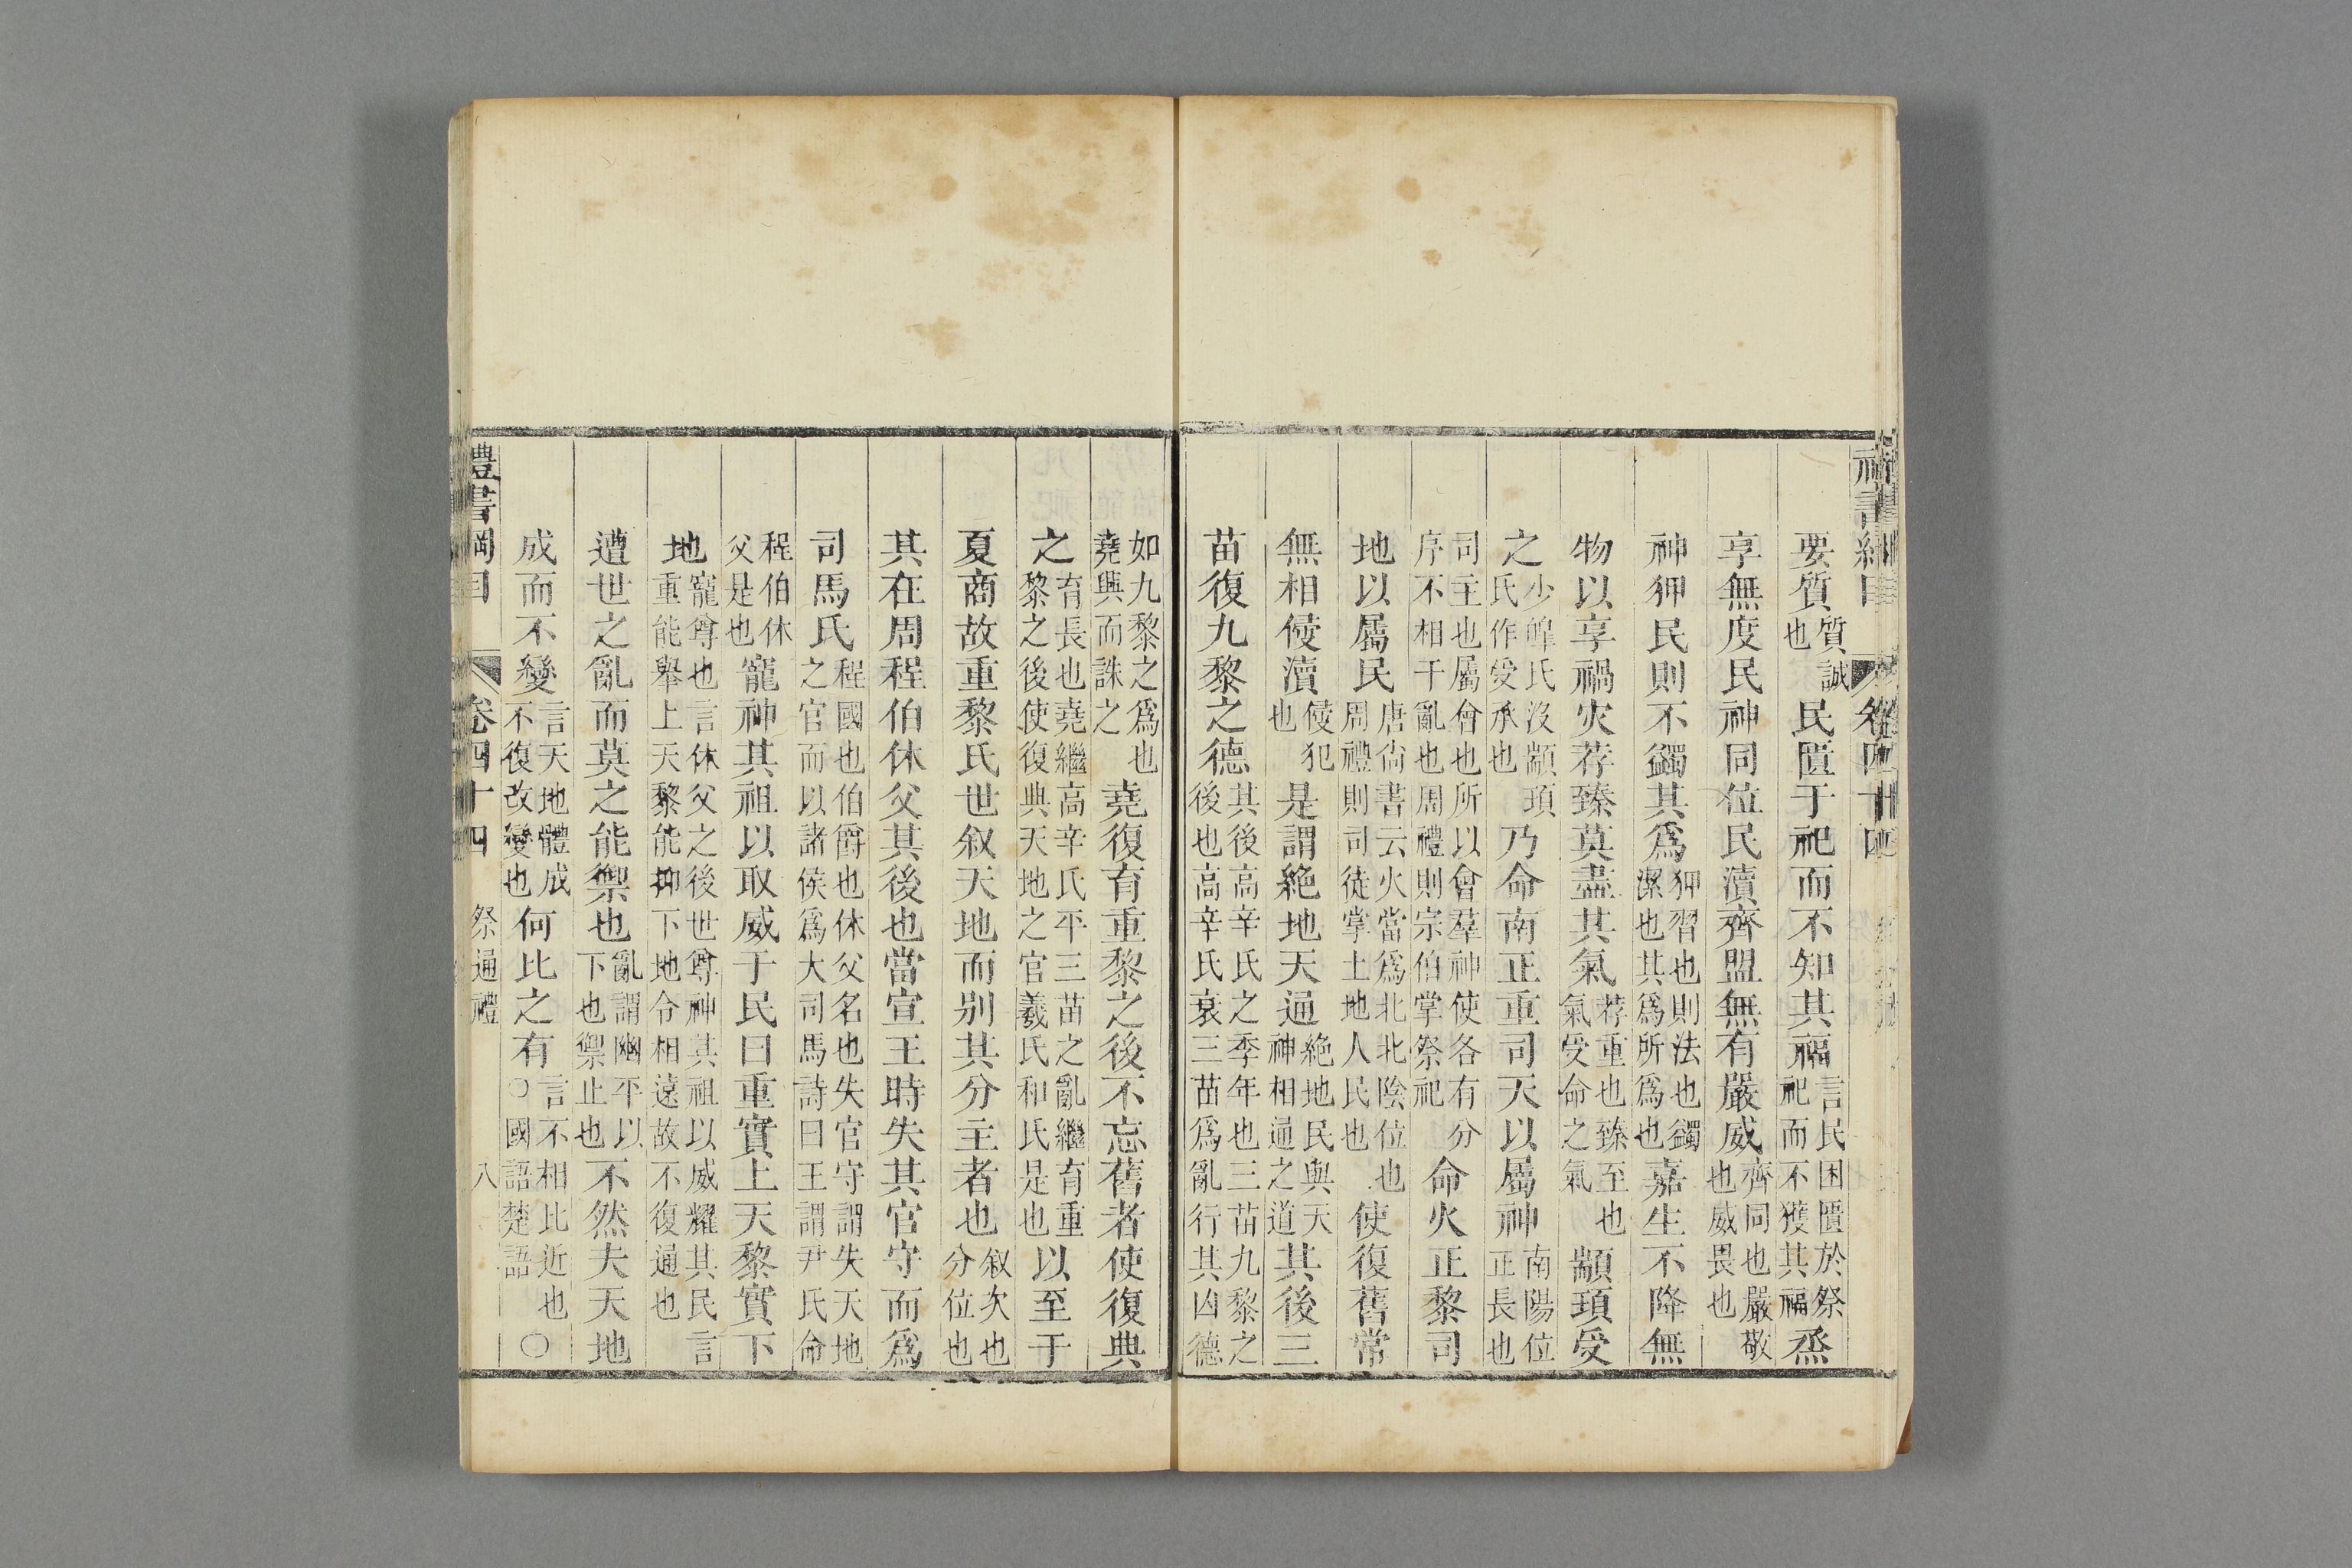 要質質誠也民匱于祀而不知其福言民困匱於祭祀而不獲其福烝
享無度民神同位民瀆齊盟無有嚴威齊同也嚴敬也威畏也
神狎民則不蠲其爲狎習也則法也蠲潔也其爲所爲也嘉生不降無
物以享禍灾荐臻莫盡其氣荐重也臻至也氣受命之氣顓頊受
之少皥氏沒顓頊氏作受承也乃命南正重司天以屬神南陽位正長也
司主也屬會也所以會羣神使各有分序不相干亂也周禮則宗伯掌祭祀命火正黎司
地以屬民唐尙書云火當爲北北陰位也周禮則司徒掌土地人民也使復舊常
無相侵瀆侵犯也是謂絶地天通絶地民與天神相通之道其後三
苗復九黎之德其後高辛氏之季年也三苗九黎之後也高辛氏衰三苗爲亂行其凶德
如九黎之爲也堯興而誅之堯復育重黎之後不忘舊者使復典
之育長也堯繼高辛氏平三苗之亂繼育重黎之後使復典天地之官羲氏和氏是也以至于
夏商故重黎氏世叙天地而别其分主者也叙次也分位也
其在周程伯休父其後也當宣王時失其官守而爲
司馬氏程國也伯爵也休父名也失官守謂失天地之官而以諸侯爲大司馬詩曰王謂尹氏命
程伯休父是也寵神其祖以取威于民曰重實上天黎實下
地寵尊也言休父之後世尊神其祖以威耀其民言重能舉上天黎能抑下地令相遠故不復通也
遭世之亂而莫之能禦也亂謂幽平以下也禦止也不然夫天地
成而不變言天地體成不復改變也何比之有言不相比近也○國語楚語○
禮書綱目 卷四十四 祭通禮 八